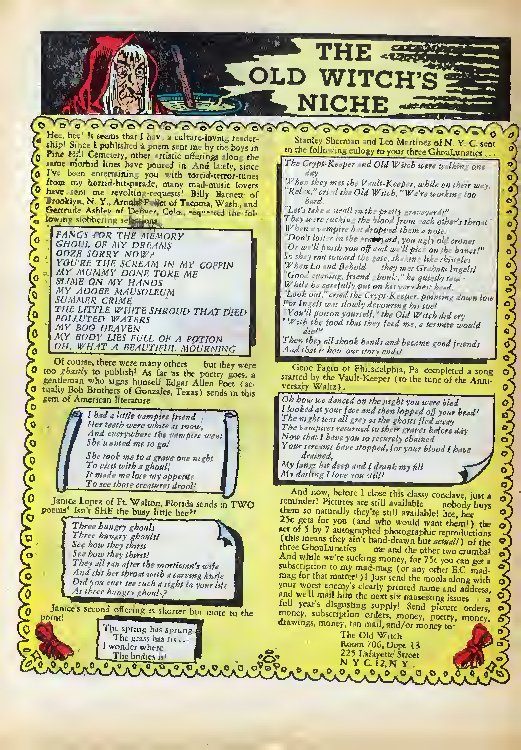 THE
OLD WITCH'S
NICHE
Hee, hee! It seems that I have a culture-loving reader-
ship! Since I published a poem sent me by the boys in
Pine Hill Cemetery, other artistic offerings along the
same morbid lines have poured in. And lately, since
I've been entertaining you with torrid-terror-tunes
from my horrid-hit-parade, many mad-music lovers
have sent me revolting-requests! Billy Barnett of
Brooklyn, N. Y., Arnold of Tacoma, Wash., and
Gertrude Ashley of Denver, Colo., requested the fol-
lowing slobbering selections
FANGS FOR THE MEMORY
GHOUL OF MY DREAMS
OOZE SORRY NOW?
YOU'RE THE SCREAM IN MY COFFIN
MY MUMMY DONE TOKE ME
SLIME ON MY HANDS
MY ADOBE MAUSOLEUM
SUMMER CRIME
THE LITTLE WHITE SHROUD THAT DIED
POLLUTED WATERS
MY BOO HEAVEN
MY BODY LIES FULL OF A POTION
OH, WHAT A BEAUTIFUL MOURNING
Of course, there were many others but they were
too ghastly to publish! As far as the poetry goes, a
gentleman who signs himself Edgar Allen Poet (ac-
tually Bob Brothers of Gonzales, Texas) sends in this
gem of American literature
I had a little vampire friend
Her teeth were white as snow,
And everywhere the vampire went
She wanted me to go!
She took me to a grave one night
To visit with a ghoul!
It made me lose my appetite
To see those creatures drool!
Janice Lopez of Ft. Walton, Florida sends in TWO
poems! Isn't SHE the busy little bee?
Three hungry ghouls
Three hungry ghouls!
See how they thirst
See how they thirst!
They all ran after the mortician's wife
And slit her throat with a carving knife
Did you ever see such a sight in your life
As three hungry ghouls?
Janice's second offering is shorter but more to the
point!
The spring has sprung
The grass has riz
I wonder where
The bodies is!
Stanley Sherman and Leo Martinez of N. Y. C. sent
in the following eulogy to your three GhouLunatics
The Crypt-Keeper and Old Witch were walking one
day
When they met the Vault-Keeper, while on their way.
"Relax," cried the Old Witch, "We're working too
hard
"Let's take a stroll in the pretty graveyard!"
They were sucking the blood from each other's throat
When a vampire bat dropped them a note.
"Don't loiter in the graveyard, you ugly old crones
"Or we'll brush you off and we'll pick on the bones!"
So they ran toward the gate,
When Lo and Behold they met Graham Ingels!
"Good evening, friend ghoul,"
While he carefully put on his
"Look out," cried the Crypt-Keeper, pointing down low
For Ingels was slowly devouring his
"You'll poison yourself," the Old Witch did cry
"With the food that they feed me, a termite would
die!"
Then they all shook hands and became good friends
And that is how our story ends!
Gene Fagin of Philadelphia, Pa. completed a song
started by the Vault-Keeper (to the tune of the Anni-
versary Waltz).
Oh how we danced on the night you were bled
I looked at your face and then lopped off your head!
The night was all grey as the ghosts fled away
The vampires returned to their graves before day
Now that I have you so securely chained
Your screams have stopped, for your blood I have
drained,
My fangs bit deep and I drank my fill
My darling I love you still!
And now, before I close this classy conclave, just a
reminder! Pictures are still available nobody buys
them so naturally they're still available! Hee, hee
25c gets for you (and who would want them!) the
set of 5 by 7 autographed photographic reproductions
(this means they ain't hand-drawn but actual!) of the
three GhouLunatics me and the other two crumbs!
And while we're sucking money, for 75c you can get a
subscription to my mad-mag (or any other E.C. mad-
mag for that matter)! Just send the moola along with
your worst enemy's clearly printed name and address,
and we'll mail him the next six nauseating issues a
full year's disgusting supply! Send picture orders,
money, subscription orders, money, poetry, money,
drawings, money, fan mail, and/or money to
The Old Witch
Room 706, Dept. 13
225 Lafayette Street
N Y C. 12, N Y